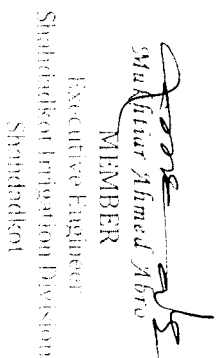 Mukhtiar Ahmed Abro
MEMBER
Executive Engineer
Shahdadkot Irrigation Division
Shahdadkot